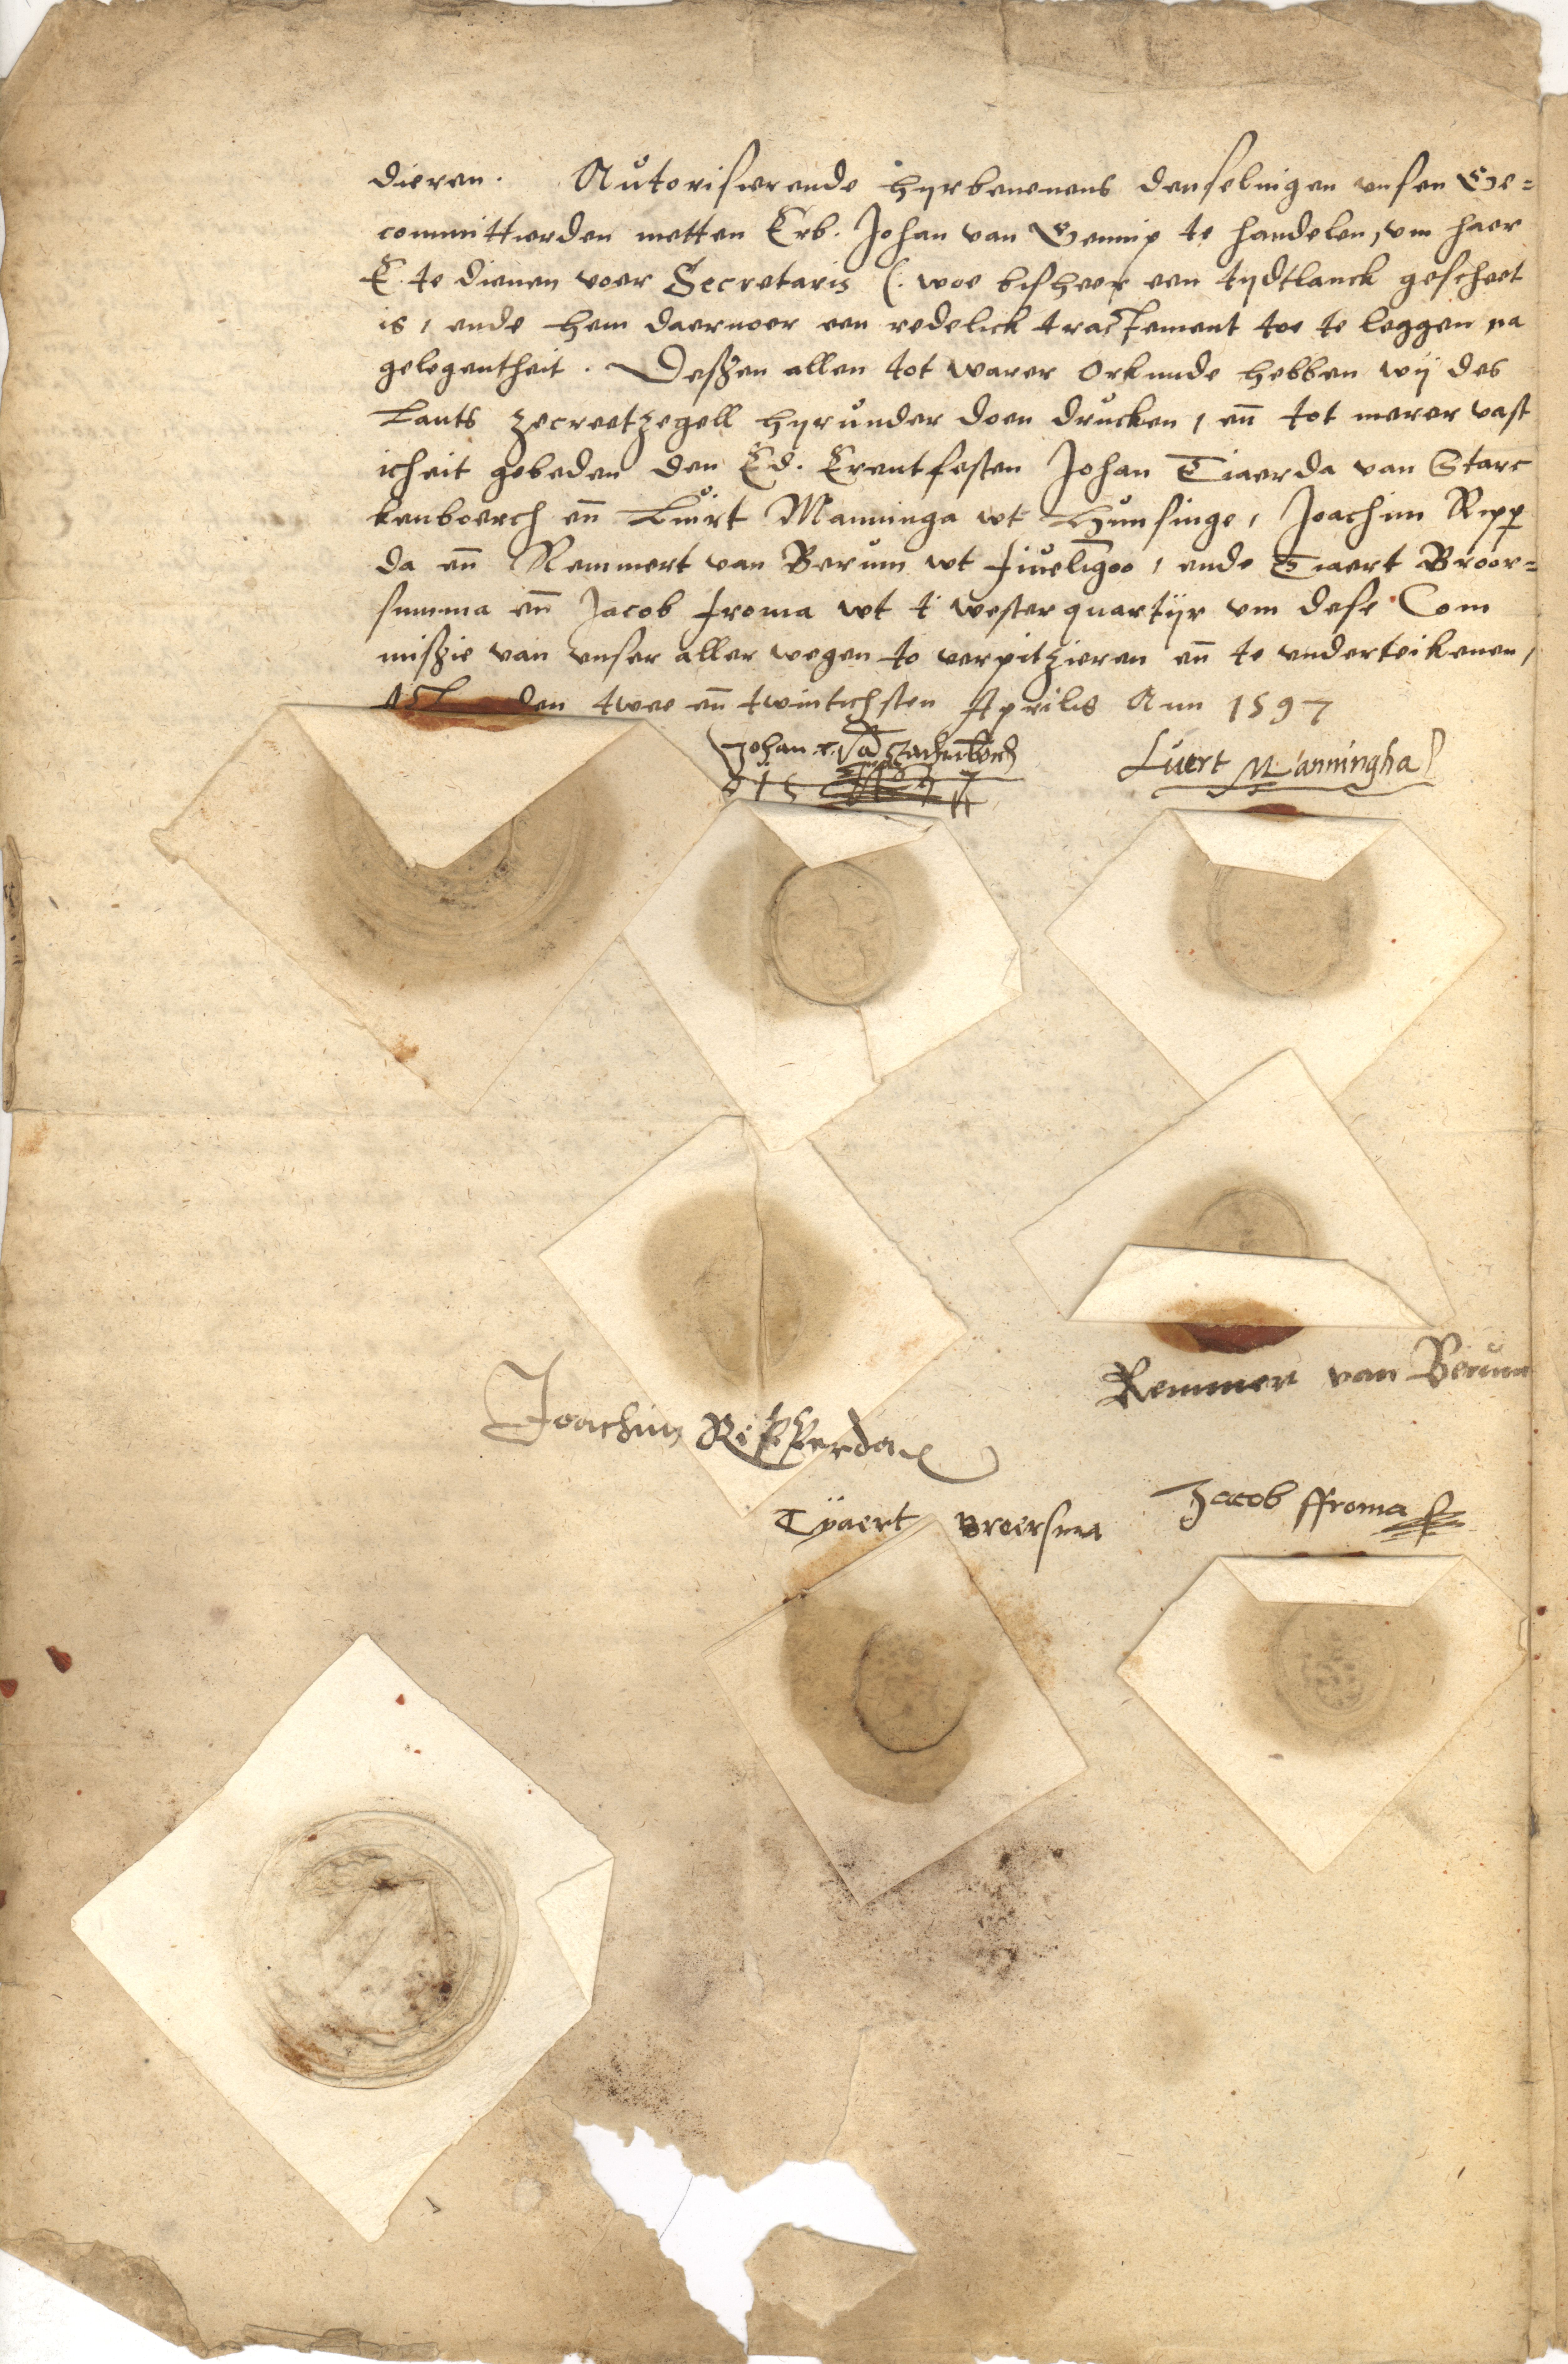 dieren. Autorisierende hyrbenevens denselvigen unsen Ge=
committierden metten Erb. Johan van Gennip te handelen, um haer
E. te dienen voer Secretaris (: woe bisheer een tydtlanck gescheet
is, ende hem daervoer een redelick tractement toe te leggen na
gelegentheit. Deszen allen tot warer Orkunde hebben wij des
Lants zecreetzegell hyrunder doen drucken, en̄ tot merer vast
icheit gebeden den Ed. Erentfesten Johan Tiaerda van Starc
kenboerch en̄ Luirt Manninga wt Hunsinge, Joachim Ripp
da en̄ Remmert van Berum wt Fiuelīgoo, ende Tiaert Broer=
summa en̄ Jacob Froma wt t westerquartijr um dese Com
miszie van unser aller wegen to verpitzieren en̄ te underteikenen,
den twee en̄ twintichsten Aprilis Ann 1597
Johan
Luert Manningha
Remmer van Berum
Joachim Ripperda
Jacob ffroma
Tyaert Broersma